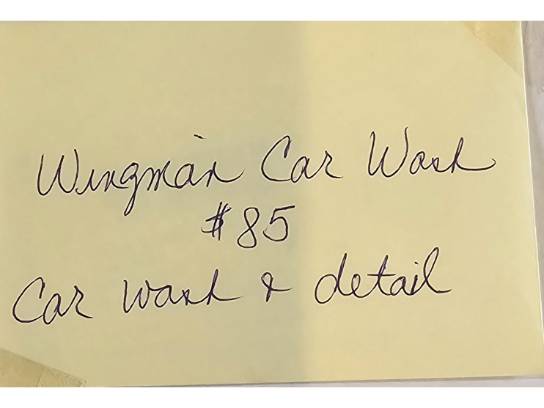 Wingman Car Wash
$85
Car wash & detail